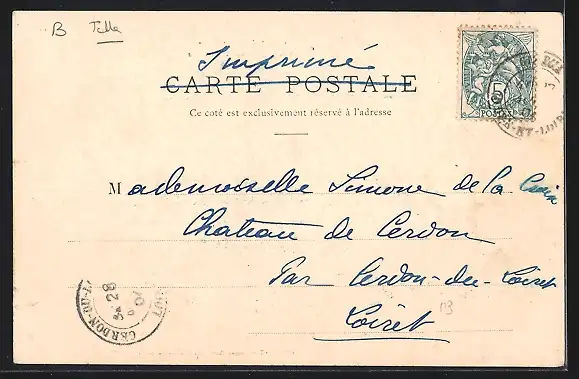 B Talla
Imprimé
CARTE POSTALE
Ce coté est exclusivement réservé à l'adresse
5
POSTES
ET-LOIR
Mademoiselle Simone de la Croix
Chateau de Cerdon
Par Cerdon-du-Loiret
Loiret
B
28
01
CERDON-DU-LOIRET